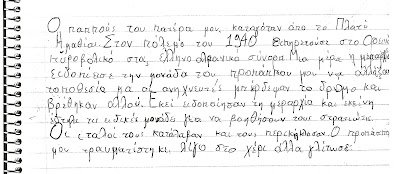 Ο παππούς του πατέρα μου, καταγόταν από το Πλατύ
Ημαθίας. Στον πόλεμο του 1940 υπηρετούσε στο Ορεινό
πυροβολικό στα ελληνοαλβανικα σύνορα. Μια μέρα η μεραρχία
ειδοποίησε την μονάδα του προπάππου μου να αλλάξουν
τοποθεσία μα οι ανιχνευτές μπέρδεψαν το δρόμο και
βρέθηκαν αλλού. Εκεί ειδοποίησαν τη μεραρχία και εκείνη
έστειλε τις ειδικές μονάδες για να βοηθήσουν τους στρατιώτες.
Οι ιταλοί τους κατάλαβαν και τους περικύκλωσαν. Ο προπάππους
μου τραυματίστηκε λίγο στο χέρι αλλά γλίτωσε.